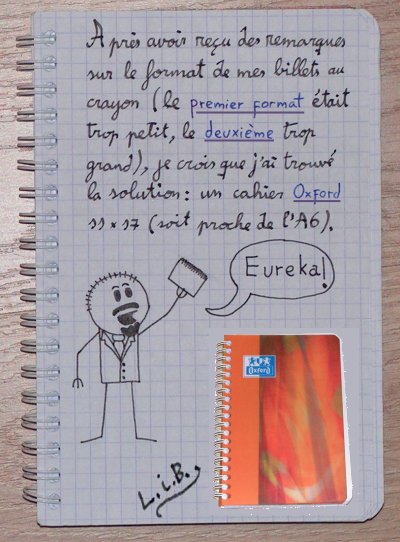 Après avoir reçu des remarques
sur le format de mes billets au
crayon (le premier format était
trop petit, le deuxième trop
grand), je crois que j'ai trouvé
la solution: un cahier Oxford
11×17 (soit proche de l'A6).
Eureka!
Oxford
L.i.B.